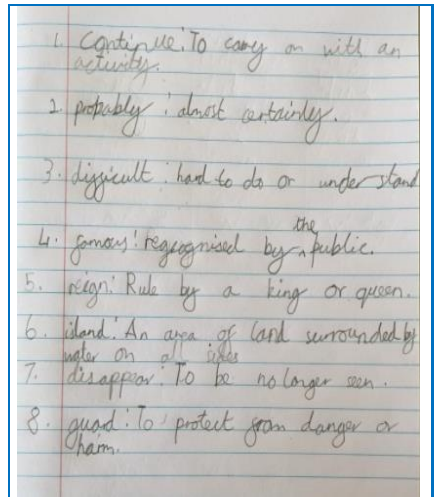 1. Continue: To carry on with an
activity.
2. probably: almost certainly.
3. difficult: hard to do or understand
4. famous: regcognised by the public.
5. reign: Rule by a king or queen.
6. island: An area of land surrounded by
water on all sides
7. disappear: To be no longer seen.
8. guard: To protect from danger or
harm.